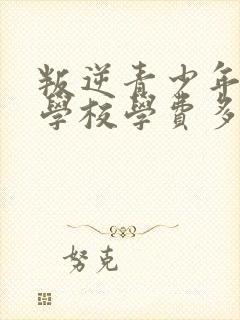 叛逆青少年
學校學費多
努克